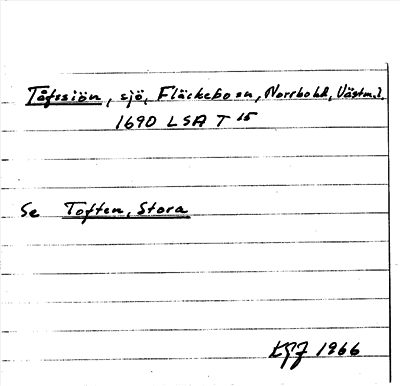 Tåfssiön, sjö, Fläckebo sn, Norrbo hd, Västm.l.
1690 LSA T 15
Se Toften, Stora
1966